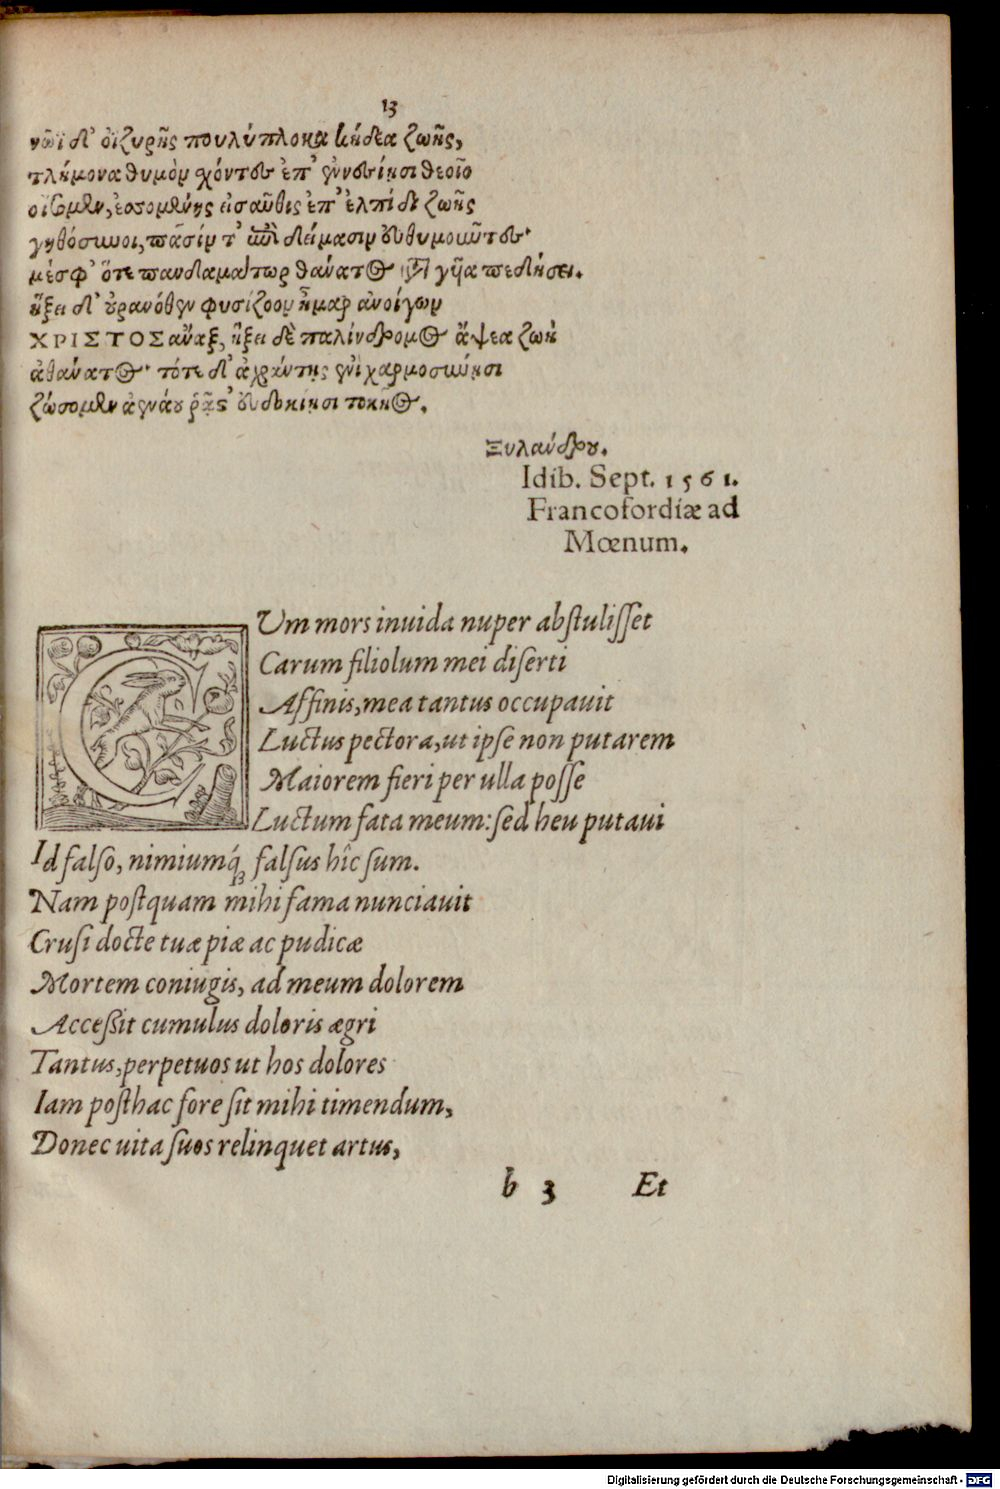 13
νῶϊ δ' ὀϊζυρῆς πουλύπλοκα κήδεα ζωῆς,
τλήμονα θυμὸν χόντες ἐπ' ἐννεσίῃσι θεοῖο
οἴσομεν, ἐσσομένης εἰσαῦθις ἐπ' ἐλπίδι ζωῆς
γηθόσυνοι, πᾶσίν τ' ἐπὶ δείμασιν εὐθυμοιῦντες·
μέσφ' ὅτε πανδαμάτωρ θάνατος γυῖα πεδήσει.
ἥξει δ' οὐρανόθεν φυσίζοον ἦμαρ ἀνοίγων
ΧΡΙΣΤΟΣ ἄναξ, ἥξει δὲ παλίνδρομος ἅψεα ζωὴ
ἀθάνατος· τότε δ' ἀχράντῃς ἐνὶ χαρμοσύνῃσι
ζώσομεν ἁγνάου εὐδοκίῃσι τοκῆος.
Ξυλάνδρου.
Idib. Sept. 1561.
Francofordiæ ad
Mœnum.
CUm mors inuida nuper abstulisset
Carum filiolum mei diserti
Affinis, mea tantus occupauit
Luctus pectora, ut ipse non putarem
Maiorem fieri per ulla posse
Luctum fata meum: sed heu putaui
Id falso, nimiumq́; falsus hîc sum.
Nam postquam mihi fama nunciauit
Crusi docte tuæ piæ ac pudicæ
Mortem coniugis, ad meum dolorem
Acceßit cumulus doloris ægri
Tantus, perpetuos ut hos dolores
Iam posthac fore sit mihi timendum,
Donec uita suos relinquet artus,
b 3 Et
Digitalisierung gefördert durch die Deutsche Forschungsgemeinschaft - DFG